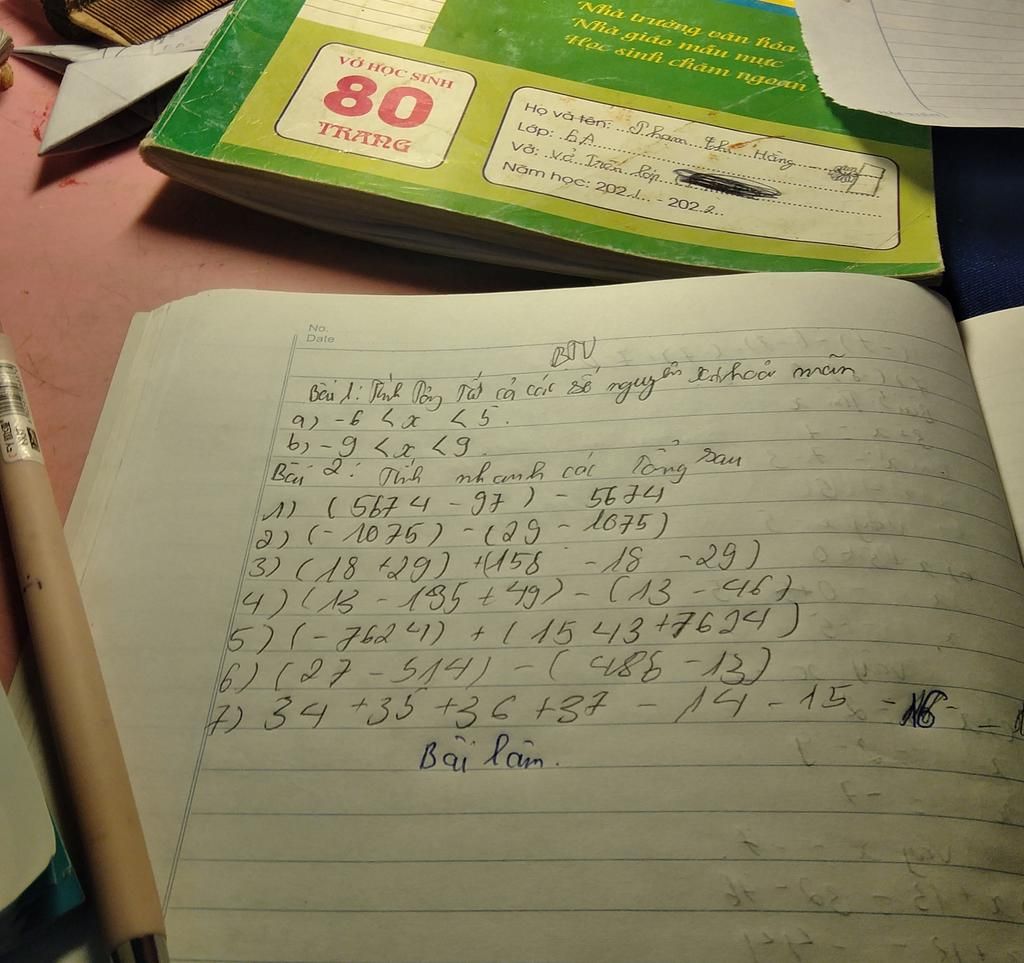 Nhà trường văn hóa
Nhà giáo mẫu mực
Học sinh chăm ngoan
VỞ HỌC SINH
80
TRANG
Họ và tên: Phạm thị Hằng
Lớp: 6A
Vở: Vở Trên lớp
Năm học: 2021 - 2022
No.
Date
BTV
Bài 1: Tính Tổng Tất cả các số nguyên x thoả mãn
a) -6 < x < 5.
b) -9 < x < 9
Bài 2: Tính nhanh các Tổng sau
1) (5674 - 97) - 5674
2) (-1075) - (29 - 1075)
3) (18 + 29) + (158 - 18 - 29)
4) (13 - 135 + 49) - (13 - 46)
5) (-7624) + (1543 + 7624)
6) (27 - 514) - (486 - 13)
7) 34 + 35 + 36 + 37 - 14 - 15 - 16 -
Bài làm.